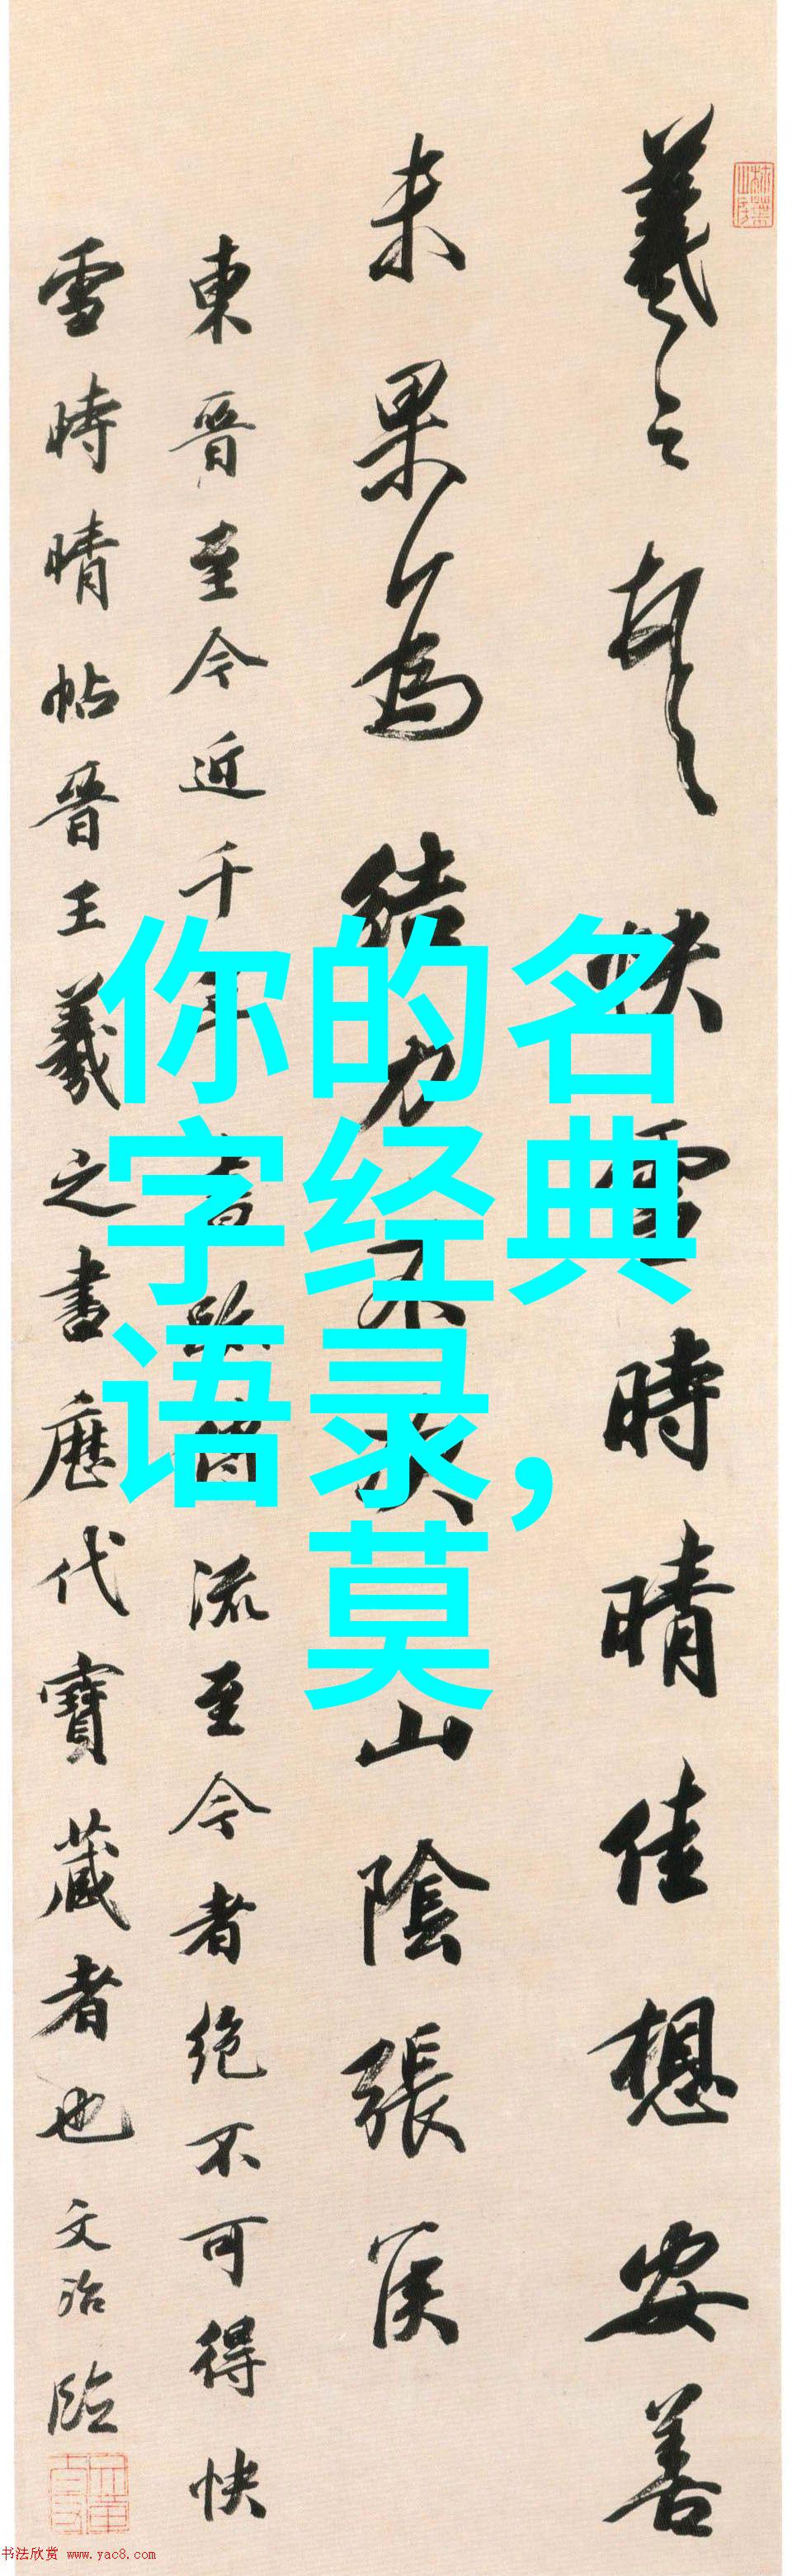 羲之頓首快雪時晴佳想安善
未果為結力不次山陰張侯
東晉至今近千年書跡傳流至今者絕不可得快
雪時晴帖晉王羲之書歷代寶藏者也文治臨
你的名
字经典
语录,
莫
书法欣赏 www.yac8.com